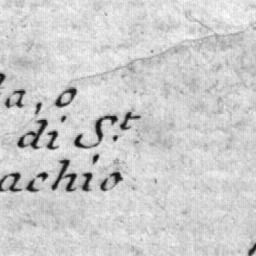 a, o
di S.t
achio